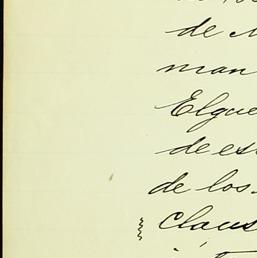 de
man
Elgue
de es
de los
Claus